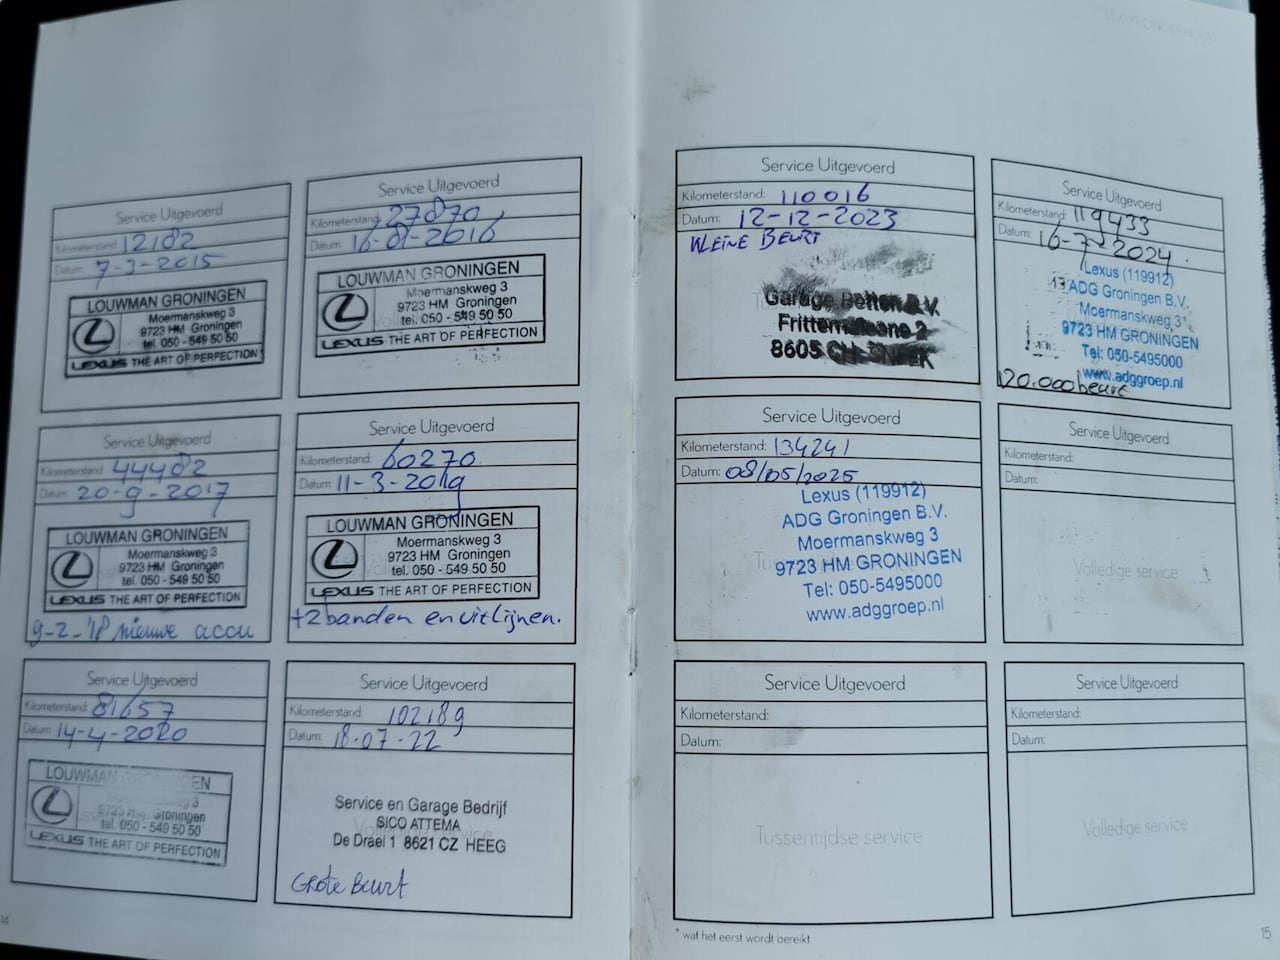 Service Uitgevoerd
Kilometerstand: 12182
Datum: 7-3-2015
LOUWMAN GRONINGEN
Moermanskweg 3
9723 HM Groningen
tel. 050 - 549 50 50
LEXUS THE ART OF PERFECTION
Service Uitgevoerd
Kilometerstand: 27870
Datum: 16-01-2016
LOUWMAN GRONINGEN
Moermanskweg 3
9723 HM Groningen
tel. 050 - 549 50 50
LEXUS THE ART OF PERFECTION
Service Uitgevoerd
Kilometerstand: 44482
Datum: 20-9-2017
LOUWMAN GRONINGEN
Moermanskweg 3
9723 HM Groningen
tel. 050 - 549 50 50
LEXUS THE ART OF PERFECTION
9-2-'18 nieuwe accu
Service Uitgevoerd
Kilometerstand: 60270
Datum: 11-3-2019
LOUWMAN GRONINGEN
Moermanskweg 3
9723 HM Groningen
tel. 050 - 549 50 50
LEXUS THE ART OF PERFECTION
+2 banden en uitlijnen.
Service Uitgevoerd
Kilometerstand: 81657
Datum: 14-4-2020
LOUWMAN GRONINGEN
Moermanskweg 3
9723 HM Groningen
tel. 050 - 549 50 50
LEXUS THE ART OF PERFECTION
Service Uitgevoerd
Kilometerstand: 102189
Datum: 18-07-22
Service en Garage Bedrijf
SICO ATTEMA
De Draei 1 8621 CZ HEEG
Grote Beurt
14
LEXUS ONDERHOUD
Service Uitgevoerd
Kilometerstand: 110016
Datum: 12-12-2023
KLEINE BEURT
Garage B.V.
2
8605 CH SNEEK
Service Uitgevoerd
Kilometerstand: 119433
Datum: 16-7-2024.
Lexus (119912)
ADG Groningen B.V.
Moermanskweg 3
9723 HM GRONINGEN
Tel: 050-5495000
www.adggroep.nl
120.000 beurt
Service Uitgevoerd
Kilometerstand: 134241
Datum: 08/05/2025
Lexus (119912)
ADG Groningen B.V.
Moermanskweg 3
9723 HM GRONINGEN
Tel: 050-5495000
www.adggroep.nl
Service Uitgevoerd
Kilometerstand:
Datum:
Volledige service
Service Uitgevoerd
Kilometerstand:
Datum:
Tussentijdse service
Service Uitgevoerd
Kilometerstand:
Datum:
Volledige service
* wat het eerst wordt bereikt
15